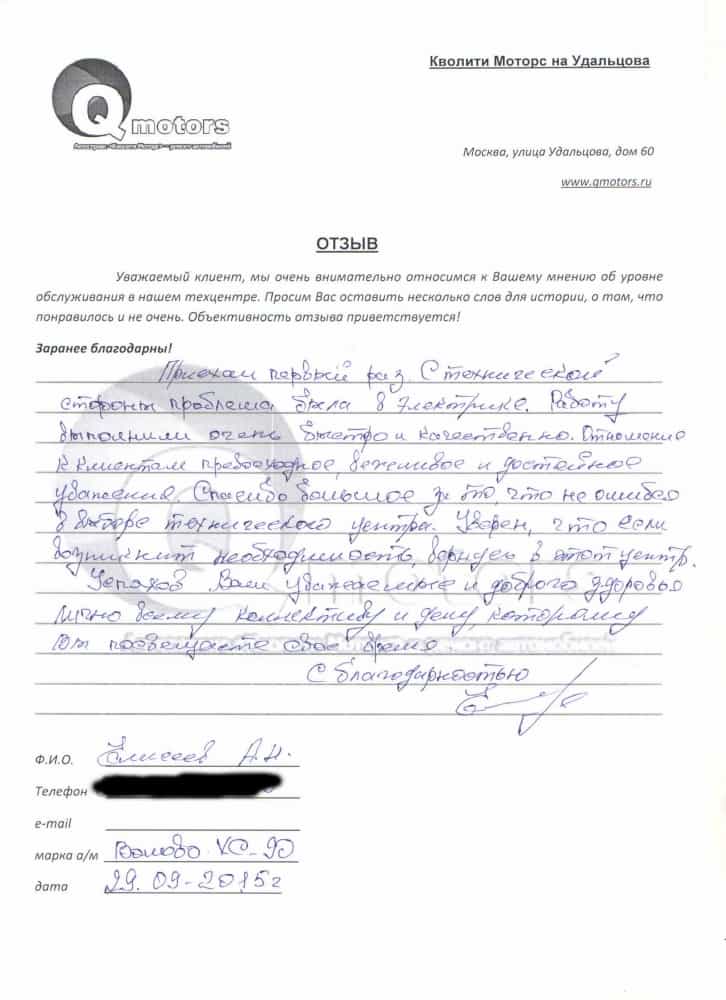 Кволити Моторс на Удальцова
Q motors
Автосервис «Кволити Моторс» — ремонт автомобилей
Москва, улица Удальцова, дом 60
www.qmotors.ru
ОТЗЫВ
Уважаемый клиент, мы очень внимательно относимся к Вашему мнению об уровне
обслуживания в нашем техцентре. Просим Вас оставить несколько слов для истории, о том, что
понравилось и не очень. Объективность отзыва приветствуется!
Заранее благодарны!
Приехал первый раз. С технической
стороны проблема была в электрике. Работу
выполнили очень быстро и качественно. Отношение
к клиентам превосходное, вежливое и достойное
уважения. Спасибо большое за то, что не ошибся
в выборе технического центра. Уверен, что если
возникнит необходимость, вернусь в этот центр.
Успехов Вам уважаемые и доброго здоровья
лично всему коллективу и делу, которому
Вы посвещаете свое время
С благодарностью
Ф.И.О. Елисеев А.Н.
Телефон
e-mail
марка а/м Вольво ХС-90
дата 29.09-2015г